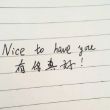 Nice to have you
有你真好！